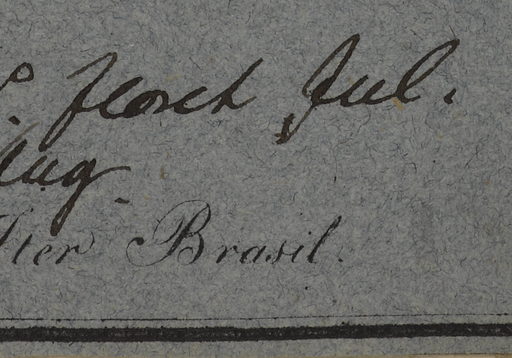 floret Jul.
Aug.
Iter Brasil.